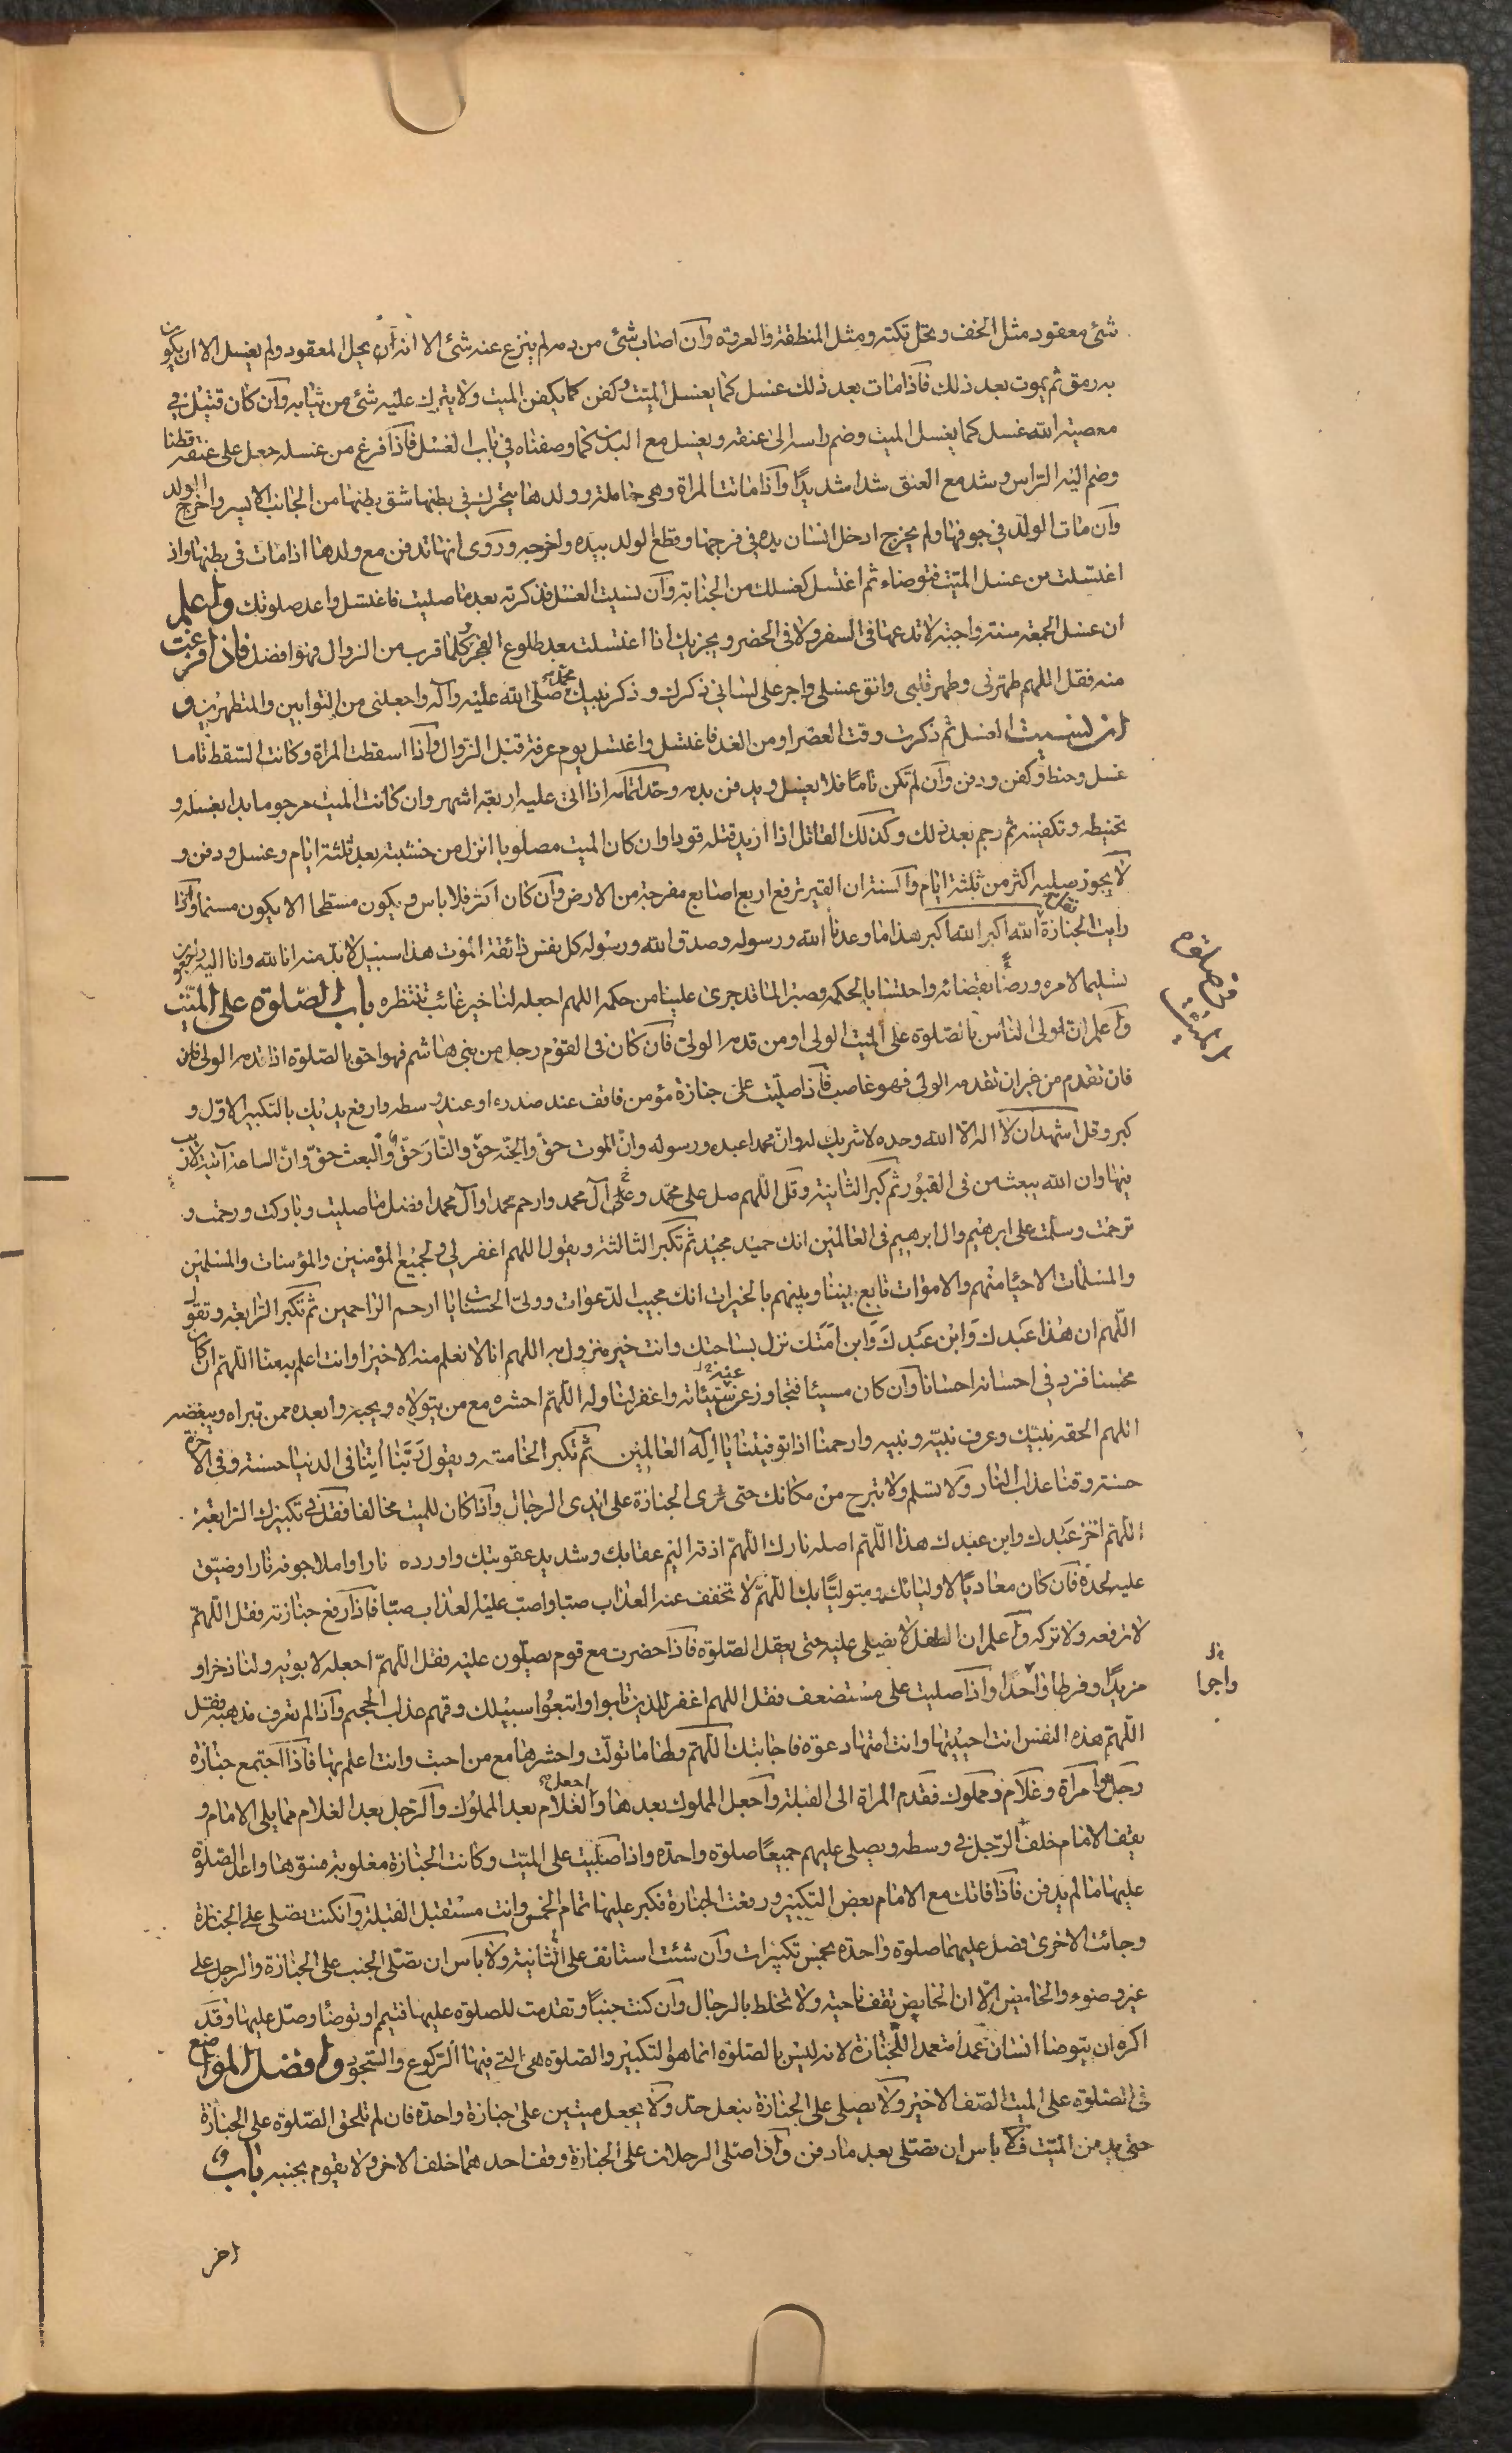 شئ معقود مثل الخف و تحل تكته و مثل المنطقة و العروة وان اصاب شئ من دمه لم ينزع عنه شئ الا انه ان يحل المعقود ولم يغسل الا ان يكون
به رمق ثم يموت بعد ذلك فاذا مات بعد ذلك غسل كما يغسل الميت وكفن كما يكفن الميت ولا يترك عليه شئ من ثيابه وان كان قتيل في
معصية الله غسل كما يغسل الميت وضم راسه الى عنقه ويغسل مع البدن كما وصفناه في باب الغسل فاذا فرغ من غسله جعل على عنقه قطنا
وضم اليه الراس وشد مع العنق شدا شديدًا واذا ماتت المراة وهي حاملة وولدها يتحرك في بطنها شق بطنها من الجانب الايسر واخرج الولد
وان مات الولد في جوفها ولم يخرج ادخل انسان يده في فرجها وقطع الولد بيده واخرجه وروى انها تدفن مع ولدها اذا مات في بطنها واذ
اغتسلت من غسل الميت فتوضاء ثم اغتسل كغسلك من الجنابة وان نسيت الغسل فذكرته بعد ما صليت فاغتسل واعد صلوتك واعلم
ان غسل الجمعة سنة واجبة لا تدعها في السفر ولا في الحضر ويجزيك اذا اغتسلت بعد طلوع الفجر وكلما قرب من الزوال فهو افضل فاذا فرغت
منه فقل اللهم طهرني وطهر قلبي وانق غسلي واجر على لساني ذكرك وذكر نبيك محمد صلى الله عليه وآله واجعلني من التوابين والمتطهرين و
ان نسيت الغسل ثم ذكرت وقت العصر او من الغد فاغتسل واغتسل يوم عرفة قبل الزوال واذا اسقطت المراة وكانت السقط تاما
غسل وحنط وكفن ودفن وان لم تكن تامًا فلا يغسل ويدفن بدمه وحد اتمامه اذا اتى عليه اربعة اشهر وان كانت الميت مرجوما بدا بغسله و
تحنيطه وتكفينه ثم رجم بعد ذلك وكذلك القاتل اذا اريد قتله قودا وان كان الميت مصلوبا انزل من خشبته بعد ثلثة ايام وغسل ودفن و
لا يجوز صلبه اكثر من ثلثة ايام والسنة ان القبر ترفع اربع اصابع مفرجة من الارض وان كان اكثر فلا باس ويكون مسطحا الا يكون مسنما واذا
رايت الجنازة الله اكبر الله اكبر هذا ما وعدنا الله ورسوله وصدق الله ورسوله كل نفس ذائقة الموت هذا سبيل لا بد منه انا لله وانا اليه راجعون
تسليما لامره ورضًا بقضائه واحتسابا بالحكمه وصبرا لما قد جرى علينا من حكمه اللهم اجعله لنا خير غائب ننتظره باب الصلوة على الميت
واعلم ان اولى الناس بالصلوة على الميت الولى او من قدمه الولى فان كان في القوم رجل من بني هاشم فهو احق بالصلوة اذا قدمه الولى فان
فان تقدم من غير ان تقدمه الولى فهو غاصب فاذا صليت على جنازة مؤمن فاقف عند صدره او عند وسطه وارفع يديك بالتكبير الاول و
كبر وقل اشهد ان لا اله الا الله وحده لا شريك له وان محمدا عبده ورسوله وان الموت حق والجنة حق والنار حق والبعث حق وان الساعة آتية لا ريب
فيها وان الله يبعث من في القبور ثم كبر الثانية وقل اللهم صل على محمد وعلى آل محمد وارحم محمدا وآل محمد افضل ما صليت وباركت ورحمت و
ترحمت وسلمت على ابرهيم وال ابرهيم في العالمين انك حميد مجيد ثم تكبر الثالثة ويقول اللهم اغفر لي ولجميع المؤمنين والمؤمنات والمسلمين
والمسلمات الاحياء منهم والاموات تابع بيننا وبينهم بالخيرات انك مجيب الدعوات وولى الحسنات يا ارحم الراحمين ثم تكبر الرابعة وتقول
اللهم ان هذا عبدك وابن عبدك وابن امتك نزل بساحتك وانت خير منزول به اللهم انا لا نعلم منه الا خيرا وانت اعلم به منا اللهم ان كان
محسنا فزد في احسانه احسانا وان كان مسيئا فتجاوز عنه عن سيئاته واغفر لنا وله اللهم احشره مع من يتولاه ويحبه وابعده ممن تبراه ويبغضه
اللهم الحقه بنبيك وعرف نبيه ونبيه وارحمنا اذا توفيتنا يا اله العالمين ثم تكبر الخامسة ويقول ربنا آتنا في الدنيا حسنة وفي الاخرة
حسنة وقنا عذاب النار ولا تسلم ولا تبرح من مكانك حتى ترى الجنازة على ايدى الرجال واذا كان للميت مخالفا فقل في تكبيرك الرابعة
اللهم اخز عبدك وابن عبدك هذا اللهم اصله نارك اللهم اذقه اليم عقابك وشديد عقوبتك واورده نارا واملا جوفه نارا وضيق
عليه لحده فان كان معاديًا لاوليائك ومتوليًا بك اللهم لا تخفف عنه العذاب صبا واصب عليه العذاب صبا فاذا رفع جنازته فقل اللهم
لا ترفعه ولا تزكه واعلم ان الطفل لا يصلى عليه حتى يعقل الصلوة فاذا حضرت مع قوم يصلون عليه فقل اللهم اجعله لابويه ولنا ذخرا و
مزيدًا وفرطا واجرا واذا صليت على مستضعف فقل اللهم اغفر للذين تابوا واتبعوا سبيلك وقهم عذاب الجحيم واذا لم تعرف مذهبه فقل
اللهم هذه النفس انت احييتها وانت امتها دعوة فاجابتك اللهم ولها ما تولت واحشرها مع من احبت وانت اعلم بها فاذا اجتمع جنازة
رجل وامرأة وغلام ومملوك فقدم المراة الى القبلة واجعل المملوك بعدها واجعل الغلام بعد المملوك والرجل بعد الغلام مما يلى الامام و
يقف الامام خلف الرجل في وسطه ويصلى عليهم جميعًا صلوة واحدة واذا صليت على الميت وكانت الجنازة مغلوبة فسوها واعد الصلوة
عليها ما لم يدفن فاذا فاتك مع الامام بعض التكبير ورفعت الجنازة فكبر عليها تمام الخمس وانت مستقبل القبلة وان كنت تصلى على الجنازة
وجائت الاخرى فصل عليهما صلوة واحدة بخمس تكبيرات وان شئت استانف على الثانية ولا باس ان تصلى الجنب على الجنازة والرجل على
غير وضوء والحائض الا ان الحايض تقف ناحية ولا تخلط بالرجال وان كنت جنبًا وتقدمت للصلوة عليها فتيمم او توضأ وصل عليها وقد
اكره ان يتوضا انسان عمدا متعمد اللجنازة لانه ليس بالصلوة انما هو التكبير والصلوة هي التي فيها الركوع والسجود وافضل المواضع
في الصلوة على الميت الصف الاخير ولا يصلى على الجنازة بنعل حذ ولا يجعل ميتين على جنازة واحدة فان لم تلحق الصلوة على الجنازة
حتى يدفن الميت فلا باس ان تصلى بعد ما دفن واذا صلى الرجلان على الجنازة وقف احدهما خلف الاخر ولا يقوم بجنبه باب
اخر
واجرا